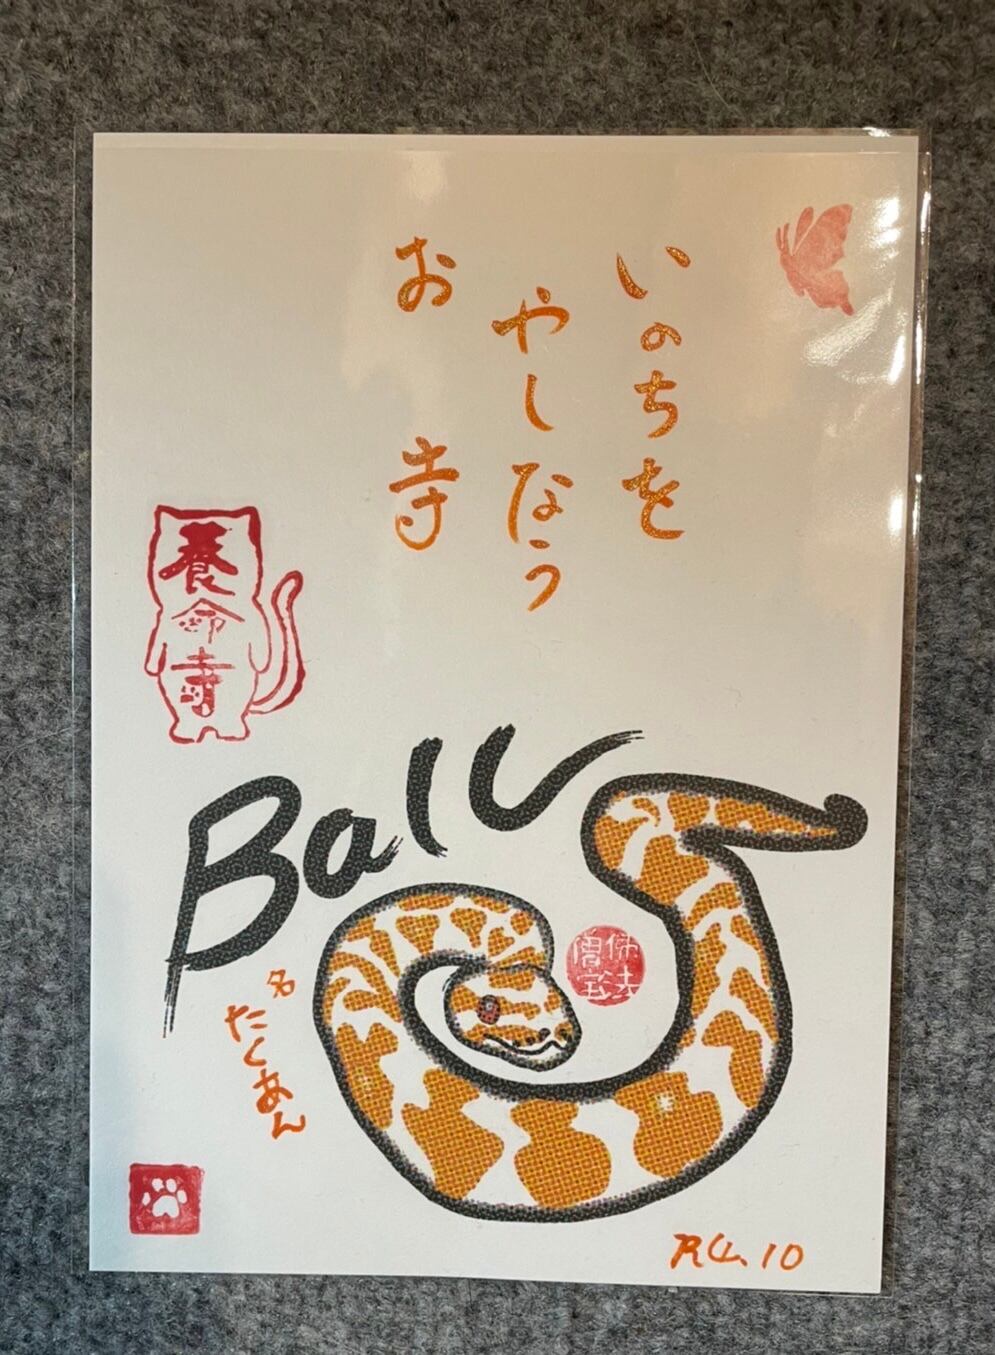 いのちを
やしなう
お寺
養命寺
Ball
名
たくあん
佛法
僧宝
R6.10